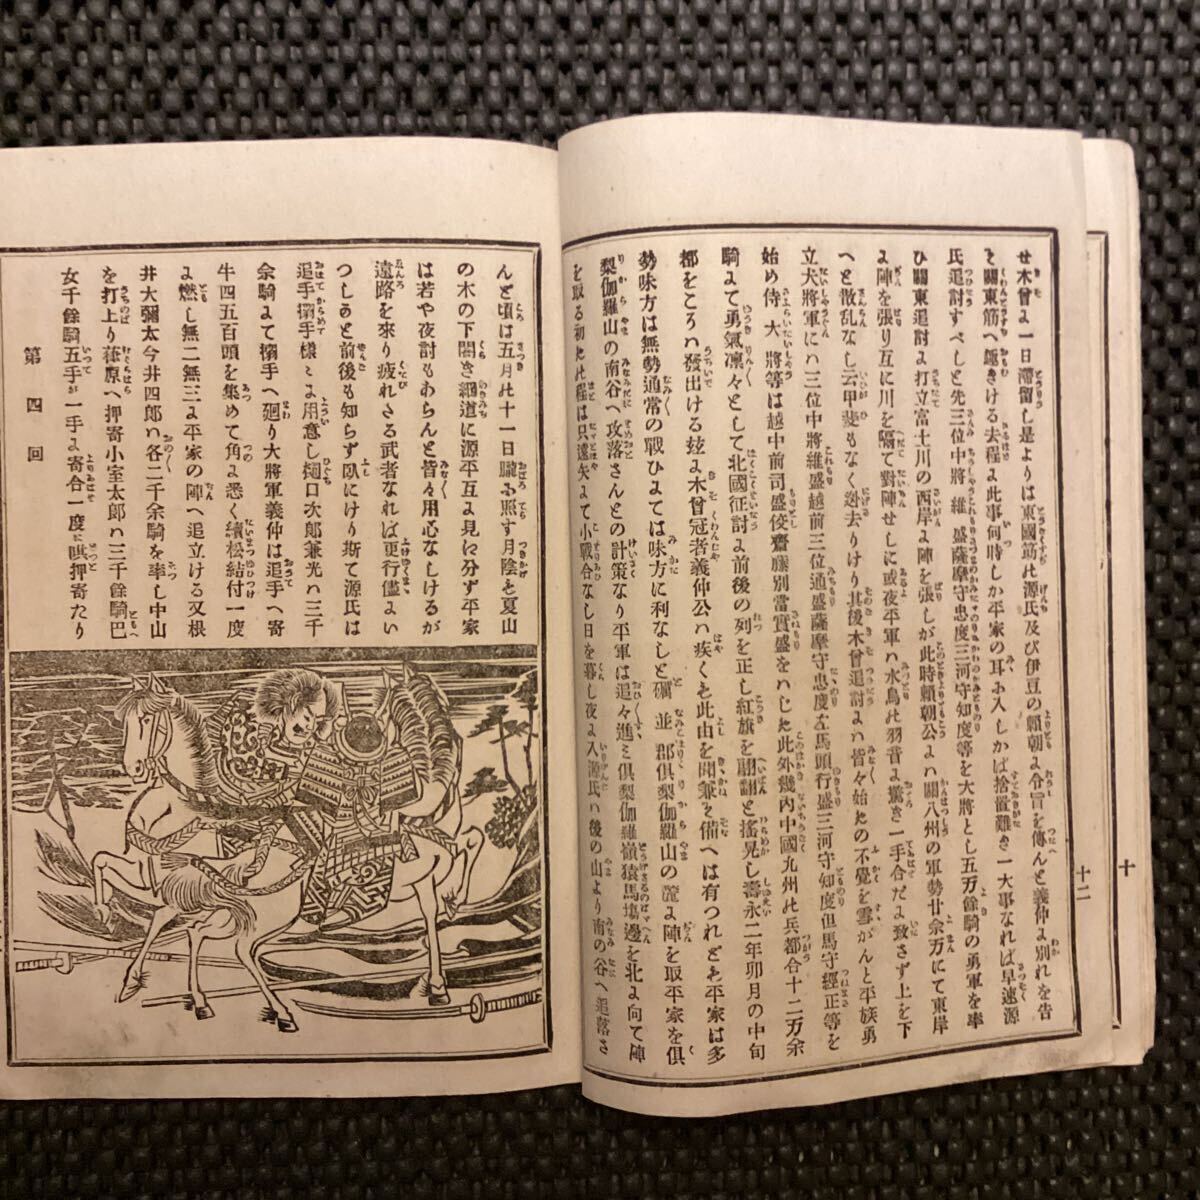 せ木曾に一日滯留し是よりは東國筋の源氏及び伊豆の頼朝に令旨を傳んと義仲に別れを告
て關東筋へ趣きける去程に此事何時しか平家の耳に入しかば捨置難き一大事なれば早速源
氏追討すべしと先三位中將維盛薩摩守忠度三河守知度等を大將とし五万餘騎の勇軍を率
ひ關東追討に打立富士川の西岸に陣を張しが此時頼朝公にハ關八州の軍勢廿余万にて東岸
に陣を張り互に川を隔て對陣せしに或夜平軍ハ水鳥の羽音に驚き一手合だに致さず上を下
へと散乱なし云甲斐もなく迯去りけり其後木曾追討にハ皆々始めの不覺を雪がんと平族勇
立大將軍にハ三位中將維盛越前三位通盛薩摩守忠度左馬頭行盛三河守知度但馬守經正等を
始め侍大將等は越中前司盛俊齋藤別當實盛をはじめ此外幾内中國九州の兵都合十二万余
騎にて勇氣凛々として北國征討に前後の列を正し紅旗を翩翻と搖晃し壽永二年卯月の中旬
都をころハ發出ける玆に木曾冠者義仲公ハ疾くも此由を聞兼て備へは有つれども平家は多
勢味方は無勢通常の戰ひにては味方に利なしと礪並郡倶梨伽羅山の麓に陣を取平家を倶
梨伽羅山の南谷へ攻落さんとの計策なり平軍は追々進ミ倶梨伽羅嶺猿馬塲邊を北に向て陣
を取る初めの程は只遠矢にて小戰合なし日を暮し夜に入源氏ハ後の山より南の谷へ追落さ
十二
十
んと頃は五月の十一日朧に照す月陰も夏山
の木の下闇き細道に源平互に見え分ず平家
は若や夜討もあらんと皆々用心なしけるが
遠路を來り疲れたる武者なれば更行儘にい
つしかと前後も知らず臥にけり斯て源氏は
追手搦手様々に用意し樋口次郎兼光ハ三千
余騎にて搦手へ廻り大將軍義仲は追手へ寄
牛四五百頭を集めて角に悉く續松結付一度
に燃し無二無三に平家の陣へ追立ける又根
井大彌太今井四郎ハ各二千余騎を率し中山
を打上り葎原へ押寄小室太郎ハ三千余騎巴
女千餘騎五手が一手に寄合一度に哄押寄たり
第四回